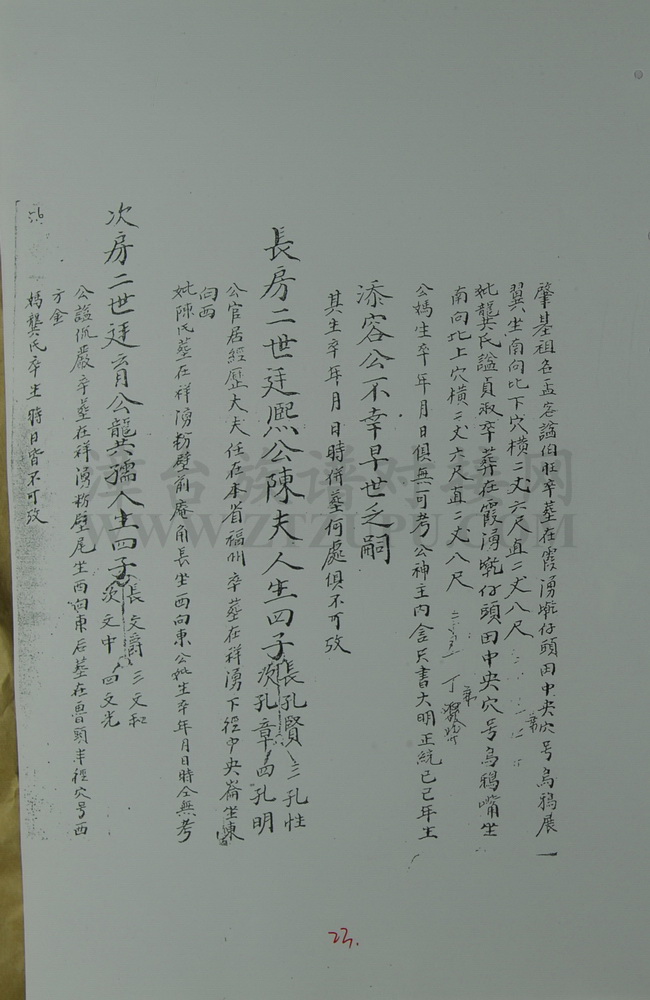 肇基祖名孟容諡伯旺卒葬在霞湧墘仔頭田中央穴号烏鴉展
翼坐南向北下穴橫二丈六尺直二丈八尺
妣龔氏諡貞淑卒葬在霞湧墘仔頭田中央穴号烏鴉嘴坐
南向北上穴橫二丈六尺直二丈八尺
公媽生卒年月日俱無可考公神主內含只書大明正統己巳年立
添容公不幸早世乏嗣
其生卒年月日時併葬何處俱不可攷
長房二世廷熙公陳夫人生四子長孔賢三孔性
次孔章四孔明
公官居經歷大夫任在本省福州卒葬在祥湧下徑中央崙坐東
向西
妣陳氏葬在祥湧粉壁前庵角長坐西向東公妣生卒年月日時仝無考
次房二世廷育公龔孺人生四子長文爵三文和
次文中四文光
公諡侃嚴卒葬在祥湧粉壁尾坐西向東后葬在魯頭半徑穴号西
方金
媽龔氏卒生時日皆不可攷
WWW.ZTZUPU.COM
23.